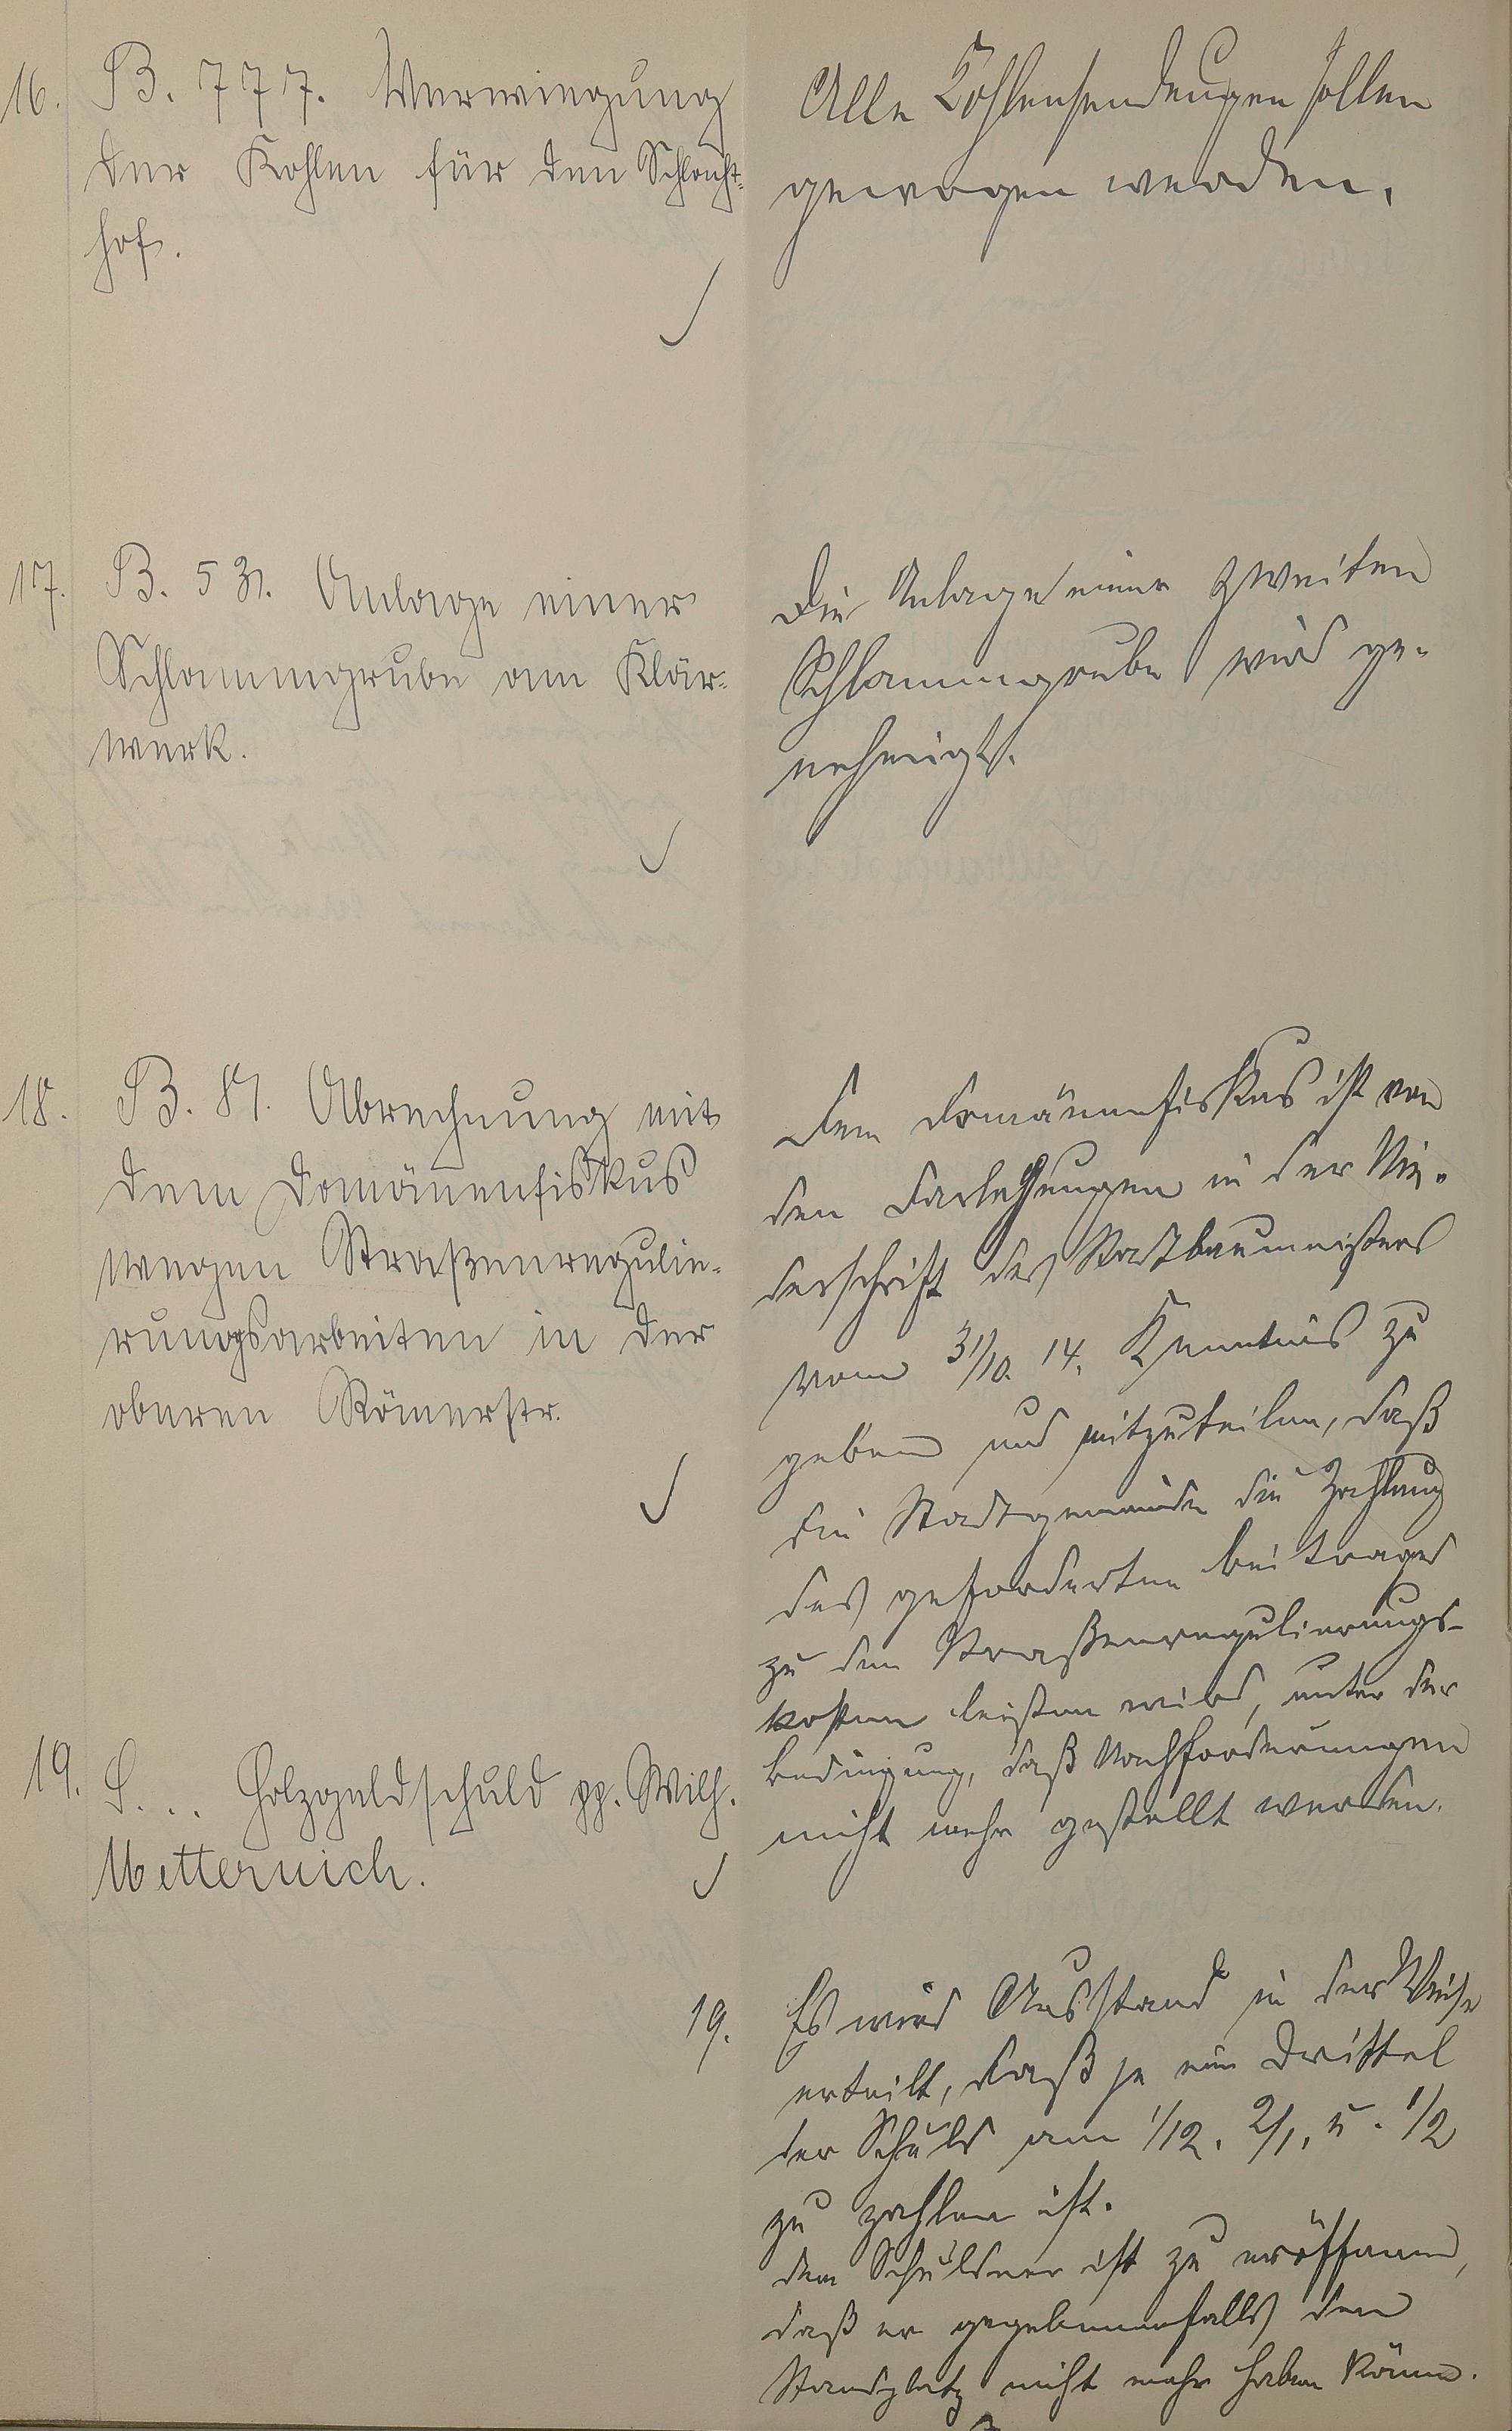 16. B. 777. Verwiegung
der Kohlen für den Schlacht-
hof.
Alle Kohlensendungen sollen
gewogen werden.
17. B. 531. Anlage einer
Schlammgrube am Klär-
werk.
Die Anlage einer zweiten
Schlammgrube wird ge-
nehmigt.
18. B. 81. Abrechnung mit
dem Domänenfiskus
wegen Straßenregulie-
rungsarbeiten in der
oberen Römerstr.
Dem Domänenfiskus ist von
den Darlegungen in der Nie-
derschrift des Stadtbaumeisters
vom 31/10. 14. Kenntnis zu
geben und mitzuteilen, daß
die Stadtgemeinde die Zahlung
des geforderten Beitrages
zu den Straßenregulierungs-
kosten leisten wird, unter der
Bedingung, daß Nachforderungen
nicht mehr gestellt werden.
19. S... Holzgeldschuld pp. Wilh.
Metternich.
19. Es wird Ausstand in der Weise
erteilt, daß je ein Drittel
der Schuld am 1/12. 2/1. u. 1/2
zu zahlen ist.
Dem Schuldner ist zu eröffnen,
daß er gegebenenfalls den
Standplatz nicht mehr haben könne.